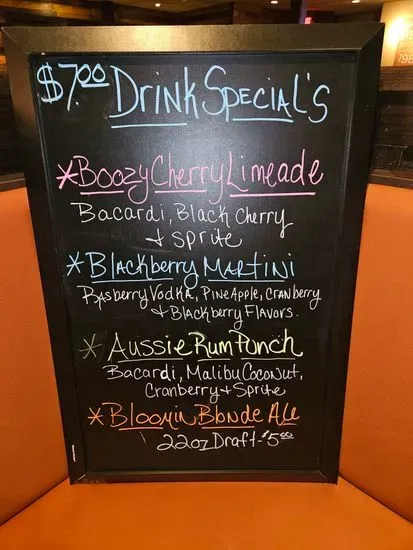 $7.00 Drink Special's
*Boozy Cherry Limeade
Bacardi, Black Cherry
+ Sprite
*Blackberry Martini
Rasberry Vodka, Pineapple, Cranberry
+ Blackberry Flavors.
*Aussie Rum Punch
Bacardi, Malibu Coconut,
Cranberry + Sprite
*Bloomin Blonde Ale
22oz Draft - $5.00